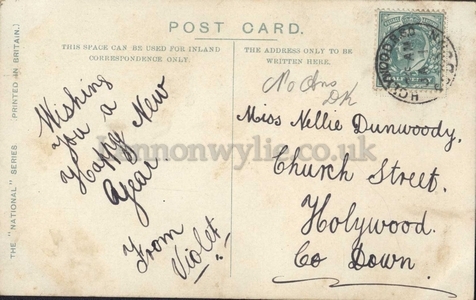 POST CARD.
THIS SPACE CAN BE USED FOR INLAND
CORRESPONDENCE ONLY.
THE ADDRESS ONLY TO BE
WRITTEN HERE.
THE "NATIONAL" SERIES.
PRINTED IN BRITAIN.
Wishing
You a
Happy New
Year.
From
Violet
No Ans
Miss Nellie Dunwoody,
Church Street.
Holywood.
Co Down.
lennonwylie.co.uk
HOLYWOOD